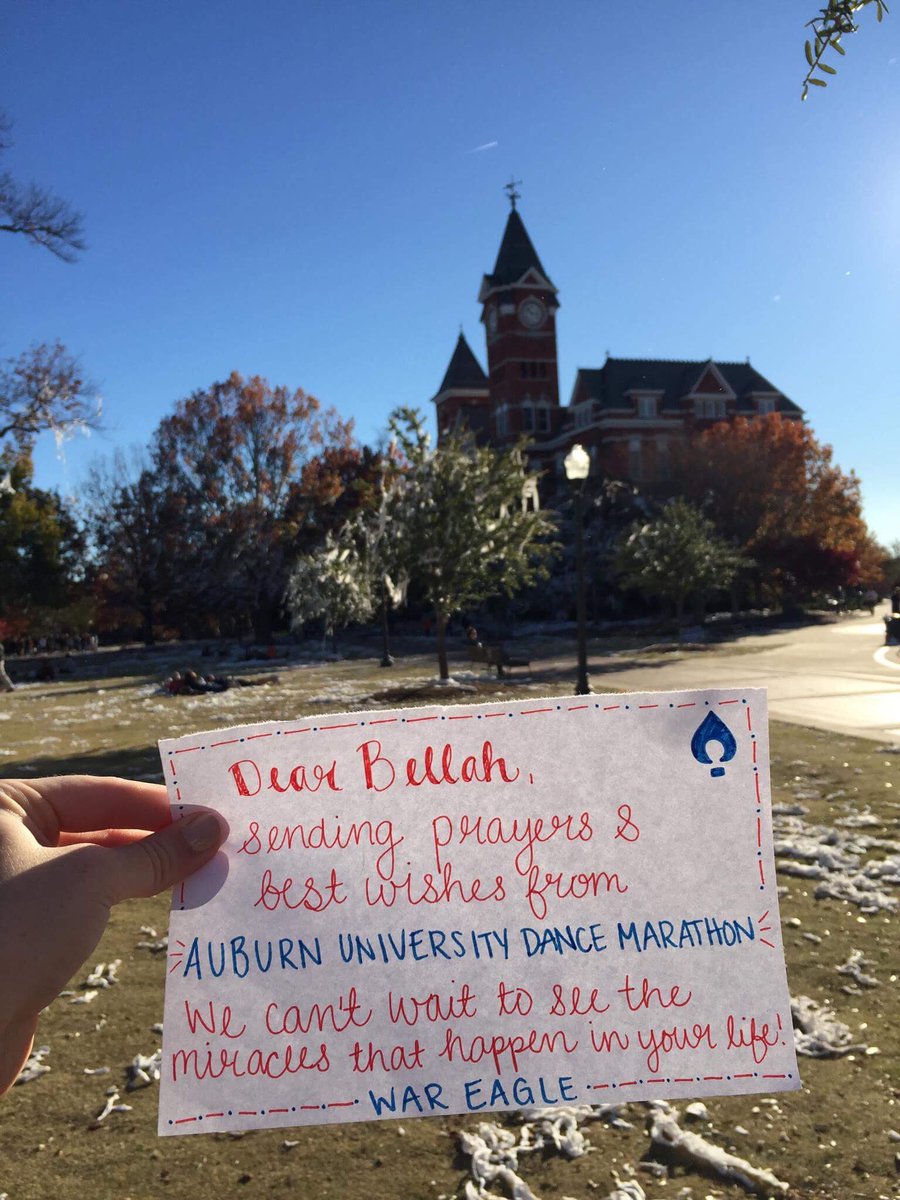 Dear Bellah,
sending prayers &
best wishes from
AUBURN UNIVERSITY DANCE MARATHON
We can't wait to see the
miracles that happen in your life!
WAR EAGLE